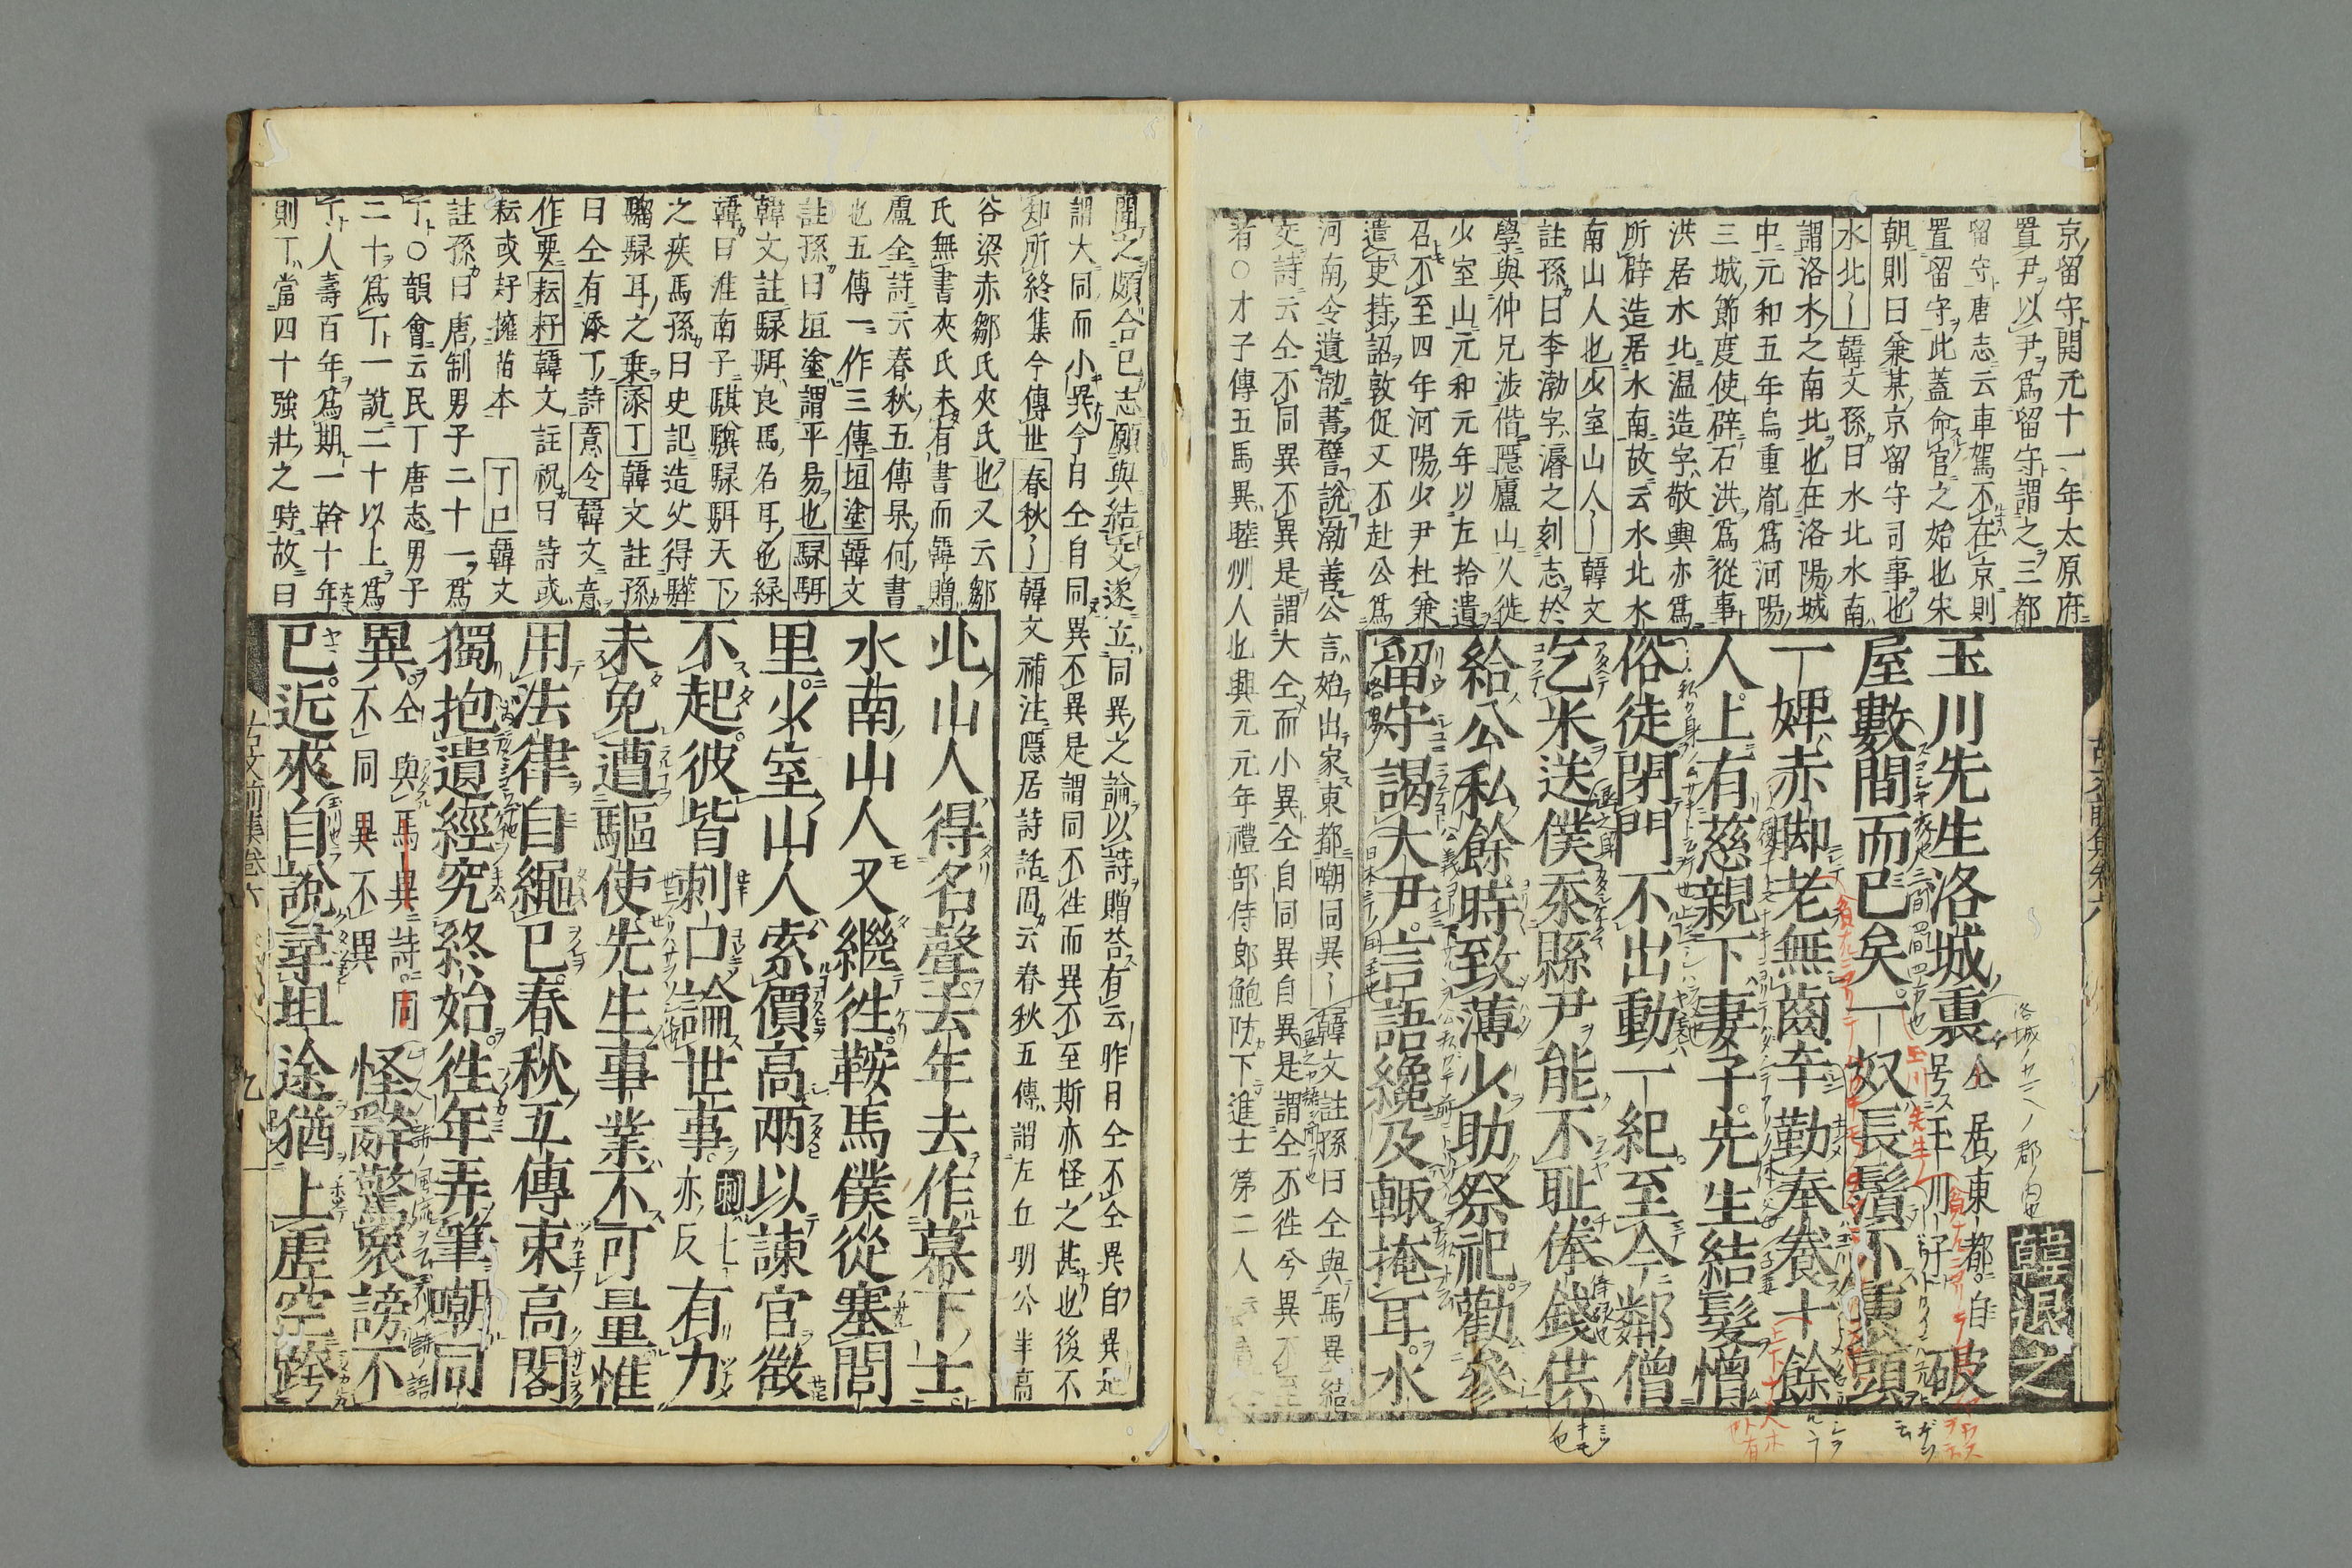 京留守開元十一年太原府
置尹以尹爲留守謂之三都
留守唐志云車駕不在京則
置留守此蓋命官之始也宋
朝則曰兼某京留守司事也
水北〻韓文孫曰水北水南
謂洛水之南北也在洛陽城
中元和五年烏重胤爲河陽
三城節度使辟石洪爲從事
洪居水北温造字敬輿亦爲
所辟造居水南故云水北水
南山人也少室山人〻韓文
註孫曰李渤字濬之刻志於
學與仲兄涉偕隱廬山久徙
少室山元和元年以左拾遺
召不至四年河陽少尹杜兼
遣吏持詔敦促又不赴公爲
河南令遺渤書譬說渤善公言始出家東都嘲同異〻韓文註孫曰仝與馬異結
交詩云仝不同異不異是謂大仝而小異仝自同異自異是謂仝不徃兮異不至
者○才子傳五馬異睦州人也興元元年禮部侍郎鮑防下進士第二人
韓退之
玉川先生洛城裏仝居東都自号玉川子破
屋數間而已矣一奴長鬚不裹頭
一婢赤脚老無齒辛勤奉養十餘
人上有慈親下妻子先生結髮憎
俗徒閉門不出動一紀至令鄰僧
乞米送僕忝縣尹能不耻俸錢供
給公私餘時致薄少助祭祀勸參
留守謁大尹言語纔及輙掩耳水
聞之頗合己志願與結交遂立同異之論以詩贈荅有云昨日仝不仝異自異是
謂大同而小異今日仝自同異不異是謂同不徃而異不至斯亦怪之甚也後不
知所終集今傳世春秋〻韓文補注隱居詩話曰云春秋五傳謂左丘明公羊高
谷梁赤鄒氏夾氏也又云鄒
氏無書夾氏未有書而韓贈
盧仝詩云春秋五傳果何書
也五傳一作三傳垣塗韓文
註孫曰垣塗謂平易也騄駬
韓文註騄駬良馬名耳也緑
韓曰淮南子騏驥騄駬天下
之疾馬孫曰史記造父得驊
騮騄耳之乗添丁韓文註孫
曰仝有添丁詩意令韓文意
作要耘耔韓文註祝曰詩或
耘或耔擁苗本　丁巳韓文
註孫曰唐制男子二十一爲
丁○韻會云民丁唐志男子
二十爲丁一說二十以上爲
丁人壽百年爲期一幹十年
則丁當四十強壯之時故曰
北山人得名聲去年去作幕下士
水南山人又繼徃鞍馬僕從塞閭
里少室山人索價高兩以諫官徵
不起彼皆刺口論世事刺七亦反有力
未免遭驅使先生事業不可量惟
用法律自繩己春秋五傳束高閣
獨抱遺經究終始徃年弄筆嘲同
異仝與馬異詩同不同異不異怪辭驚衆謗不
已近來自說尋坦途猶上虛空跨
古文前集卷六　九